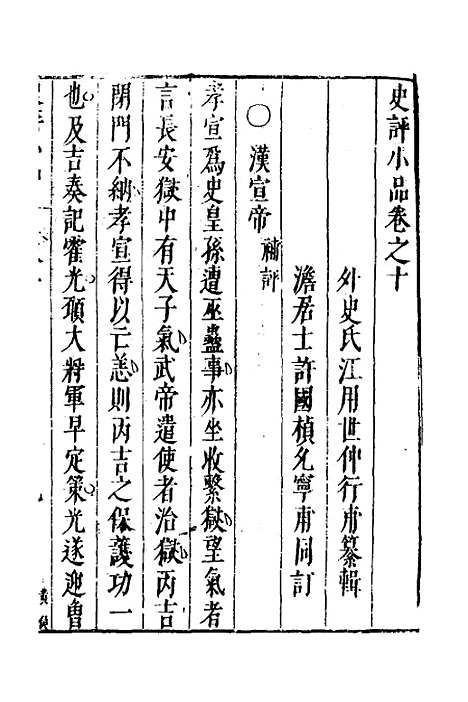 史評小品卷之十
外史氏江用世仲行甫纂輯
澹居士許國楨允寧甫同訂
○漢宣帝 補評
孝宣爲史皇孫遭巫蠱事亦坐收繫獄望氣者
言長安獄中有天子氣武帝遣使者治獄丙吉
閉門不納孝宣得以亡恙則丙吉之保護功一
也及吉奏記霍光頊大將軍早定策光遂迎曾